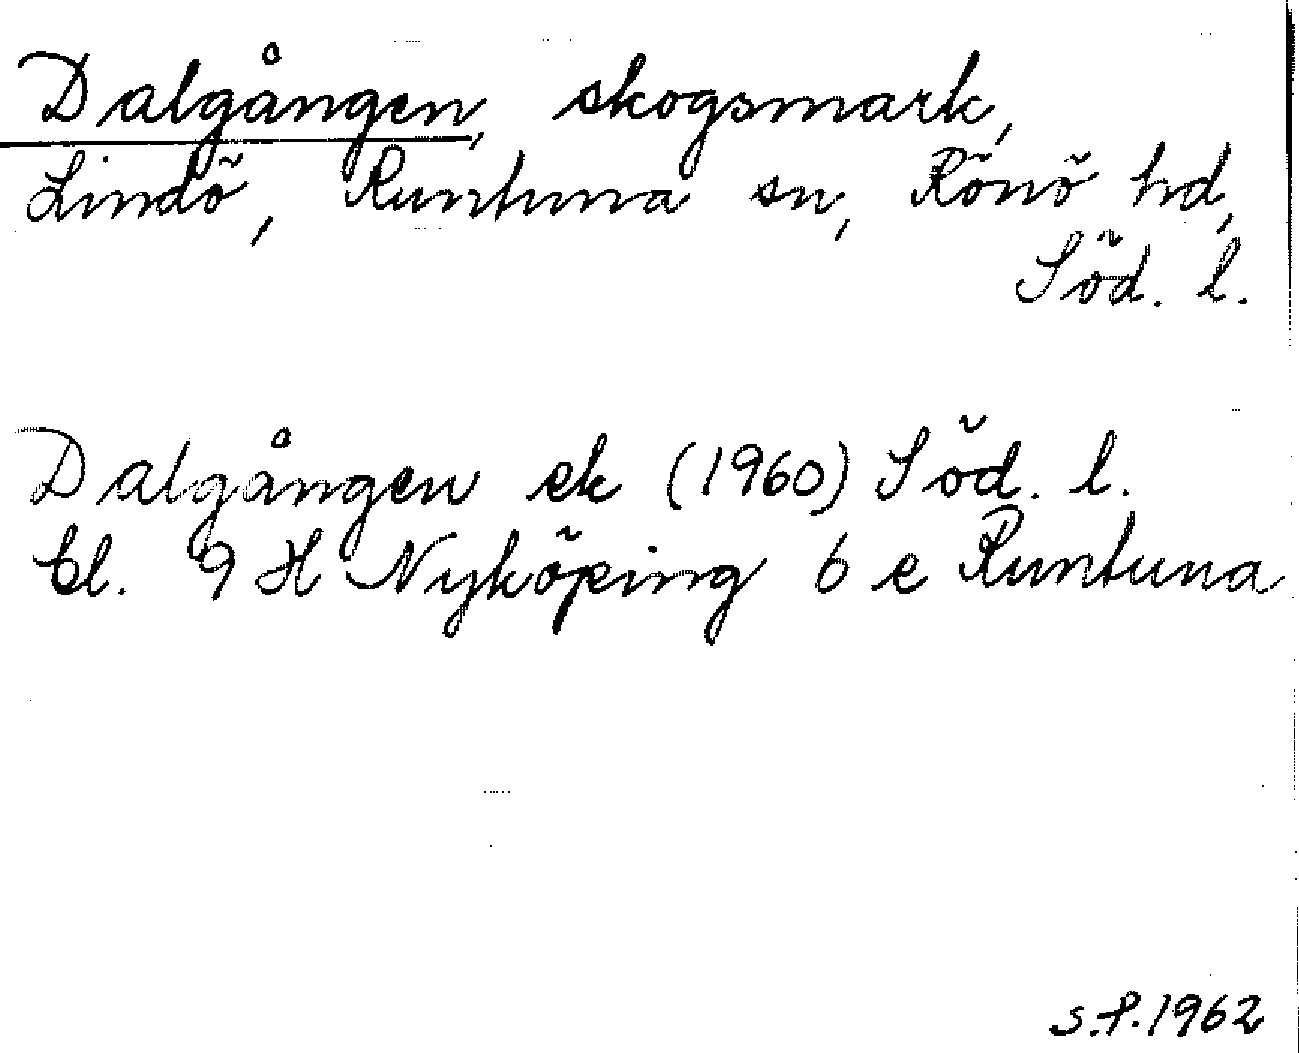 Dalgången, skogsmark,
Lindö, Runtuna sn, Rönö hd,
Söd. l.
Dalgången ek (1960) Söd. l.
bl. 9 H Nyköping 6 e Runtuna
S.P. 1962